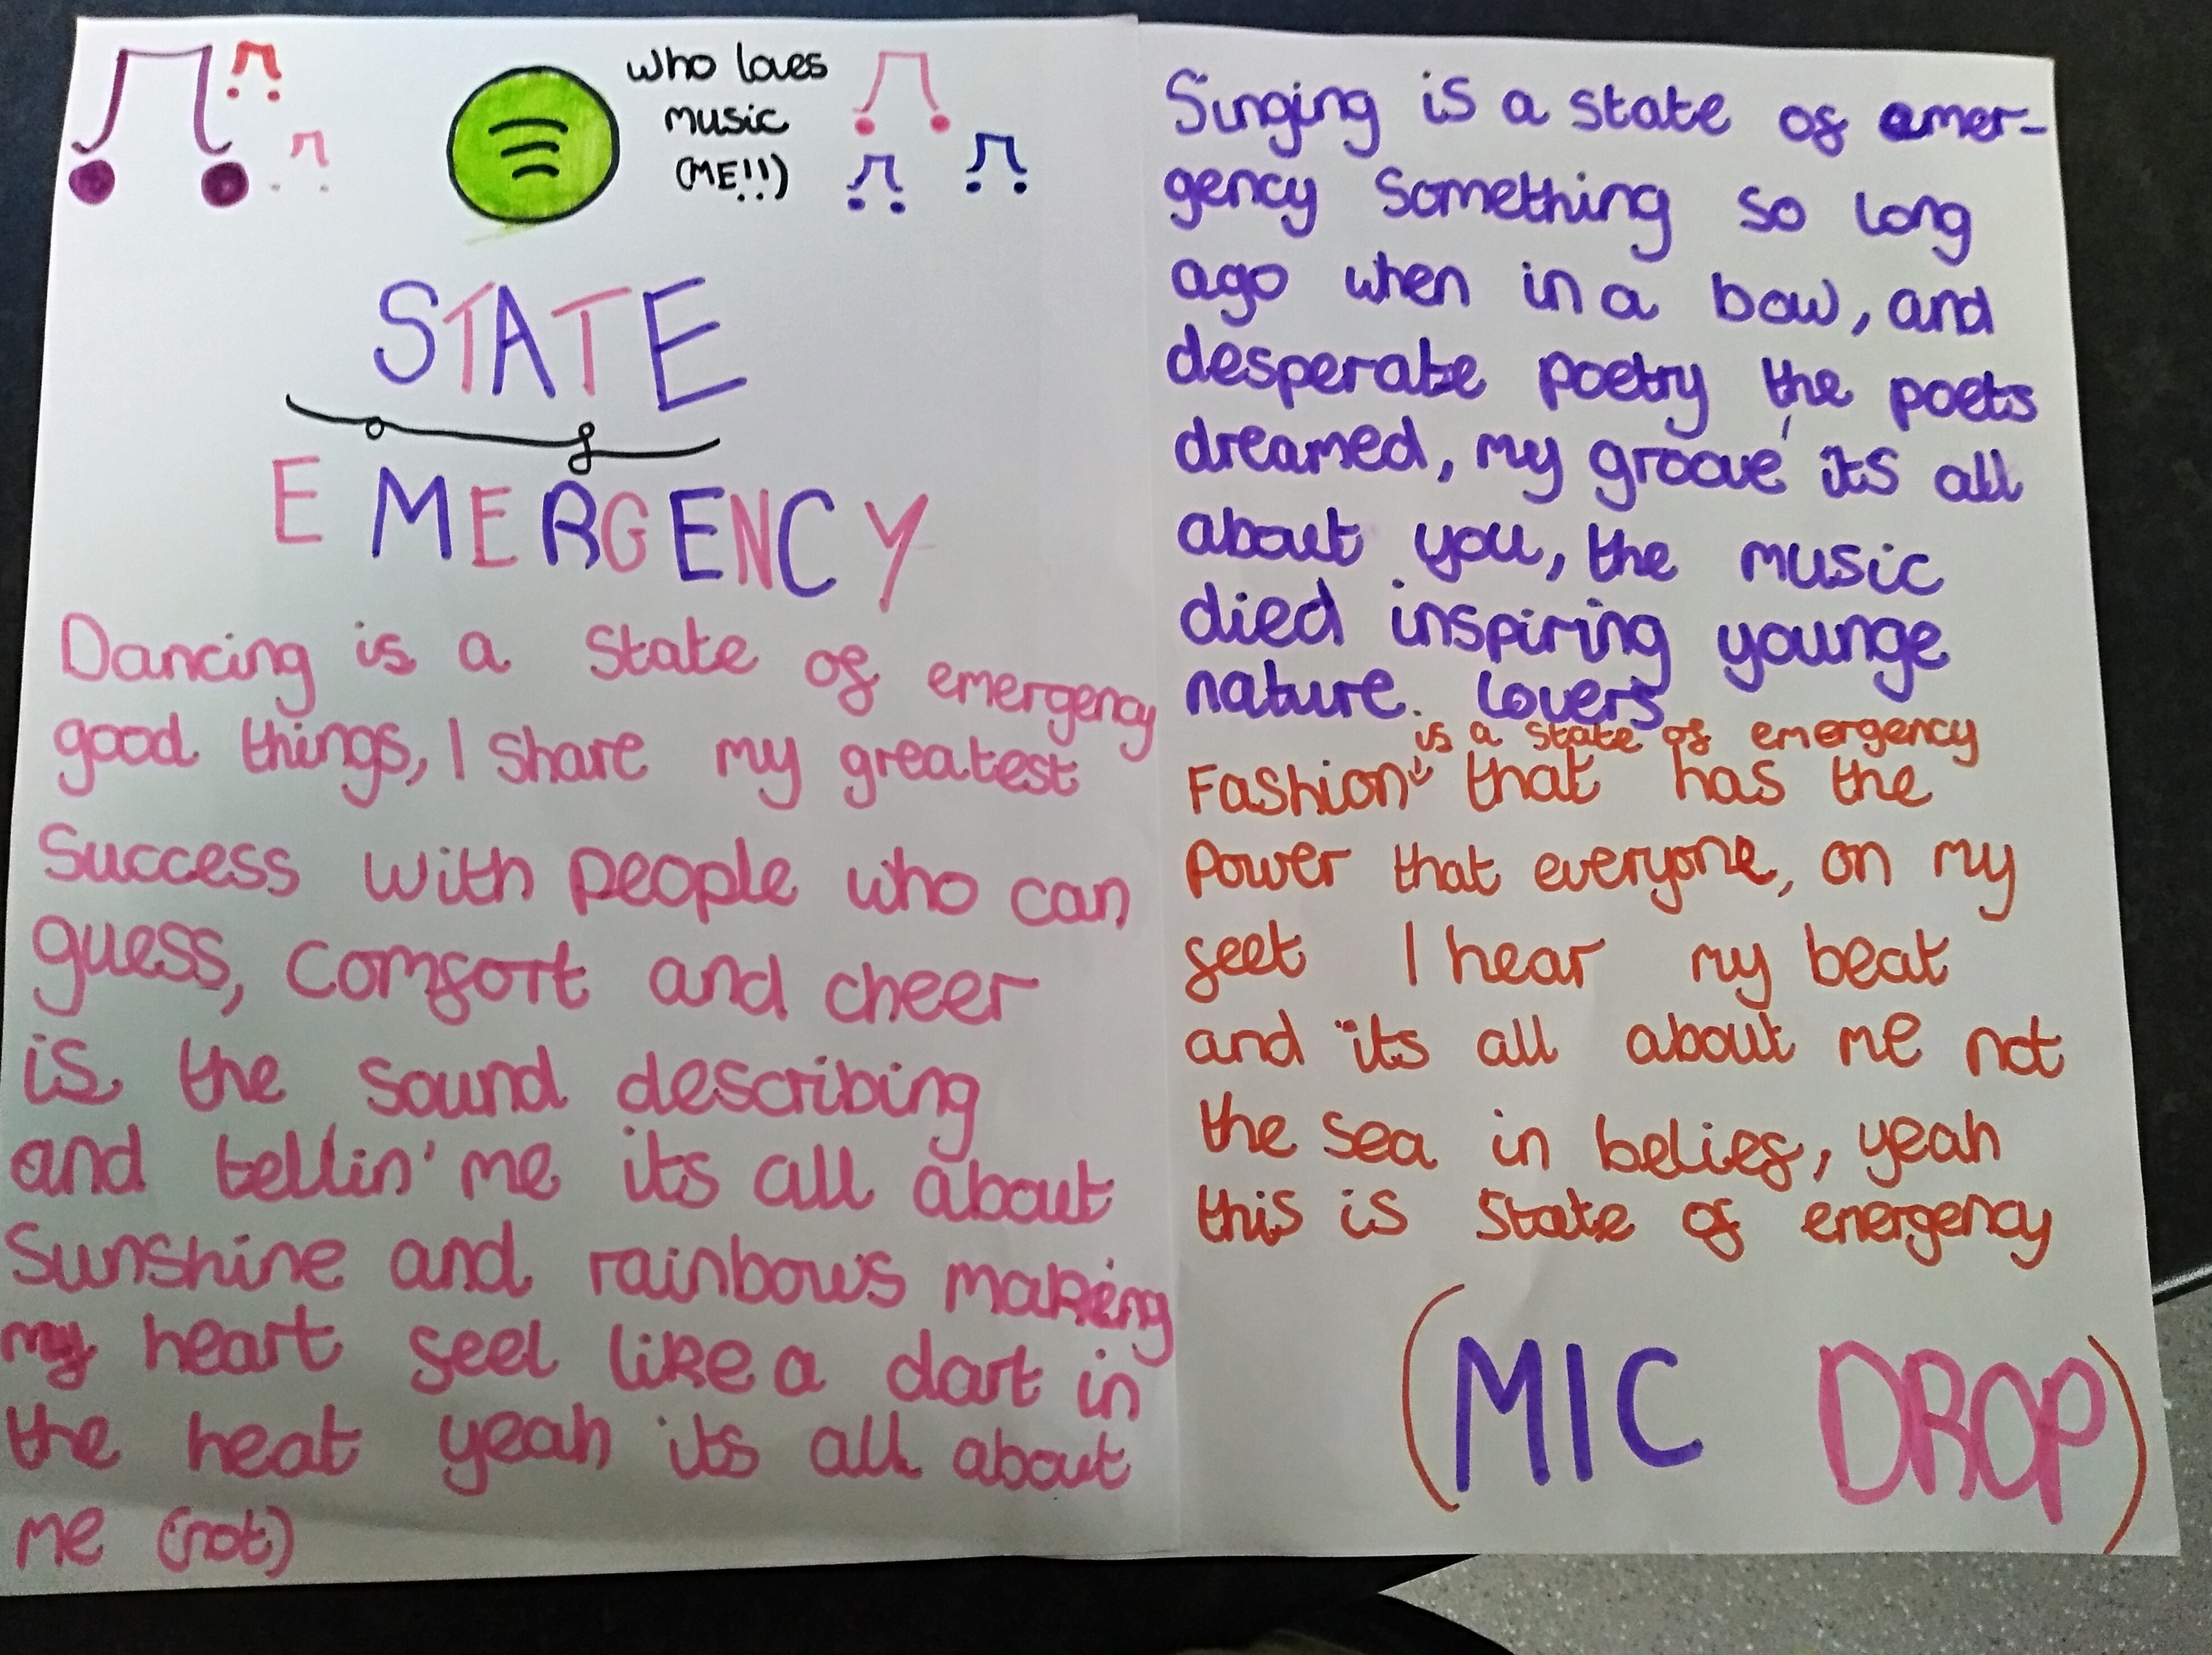 who loves
music
(ME!!)
STATE
of
EMERGENCY
Dancing is a state of emergency
good things, I share my greatest
Success with people who can
guess, comfort and cheer
is the sound describing
and tellin' me its all about
Sunshine and rainbows making
my heart feel like a dart in
the heat yeah its all about
me (not)
Singing is a state of emer-
gency something so long
ago when in a bow, and
desperate poetry the poets
dreamed, my groove, its all
about you, the music
died inspiring younge
nature. lovers
is a state of emergency
Fashion that has the
power that everyone, on my
feet I hear my beat
and its all about me not
the sea in belief, yeah
this is state of emergency
(MIC DROP)